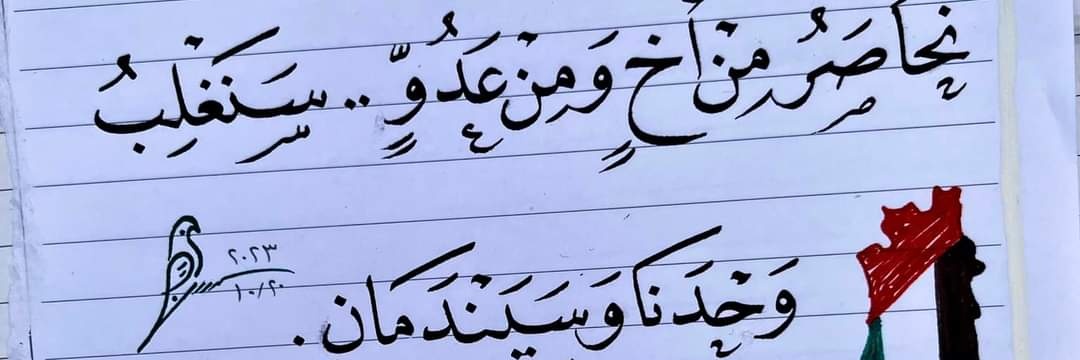 نُحَاصَرُ مِنْ أَخٍ وَمِنْ عَدُوٍّ .. سَنَغْلِبُ
وَحْدَنَا وَسَيَنْدَمَان.
٢٠٢٣
١٠/٢٠